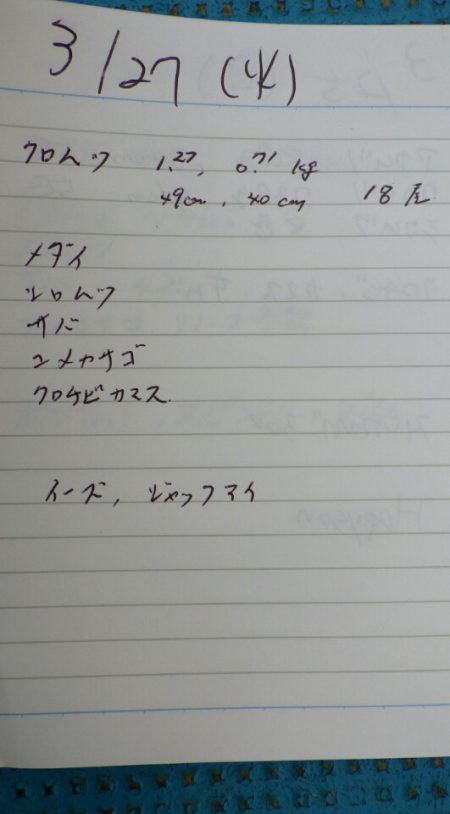 3/27 (水)
クロムツ 1.27, 0.71 kg
49cm, 40cm 18尾
メダイ
シロムツ
サバ
ユメカサゴ
クロシビカマス
イーズ, ジャックスイ